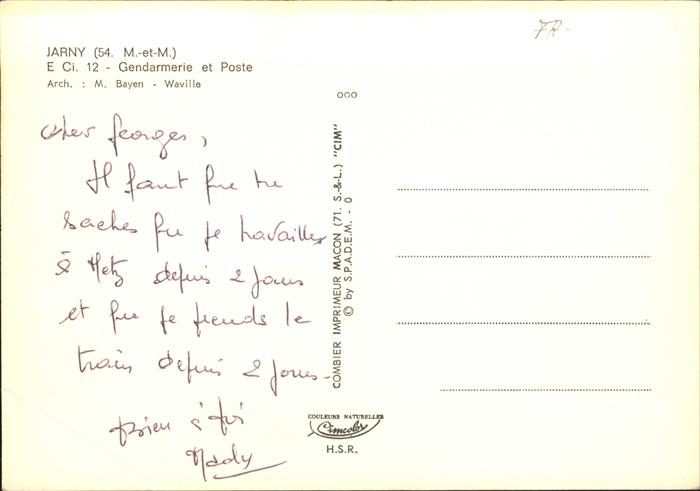 7R-
JARNY (54. M.-et-M.)
E Ci. 12 - Gendarmerie et Poste
Arch. : M. Bayen - Waville
cher Georges,
Il faut que tu
saches que je travailles
à Metz depuis 2 jours
et que je prends le
train depuis 2 jours-
Bien à toi
Mady
ooo
COMBIER IMPRIMEUR MACON (71. S.-&-L.) "CIM"
© by S.P.A.D.E.M. - 0
COULEURS NATURELLES
Cimcolor
H.S.R.